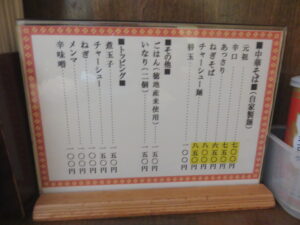 ■中華そば■(自家製麺)
元祖 七〇〇円
辛口 七五〇円
あっさり 六五〇円
ねぎそば 八〇〇円
チャーシュー麺 八五〇円
替玉 一〇〇円
■その他■
ごはん(魚沼産米使用) 一五〇円
いなり(二個) 一五〇円
■トッピング■
煮玉子 一〇〇円
チャーシュー 一五〇円
ねぎ 一〇〇円
メンマ 一〇〇円
辛味噌 一〇〇円